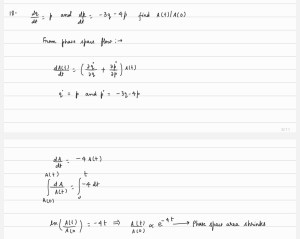 10- dq/dt = p and dp/dt = -3q - 4p find A(t)/A(0)
From phase space flow :→
dA(t)/dt = (∂q̇/∂q + ∂ṗ/∂p) A(t)
q̇ = p and ṗ = -3q - 4p
dA/dt = -4 A(t)
∫_{A(0)}^{A(t)} dA/A(t) = ∫_0^t -4 dt
ln(A(t)/A(0)) = -4t ⇒ A(t)/A(0) ∝ e^{-4t} → Phase space area shrinks